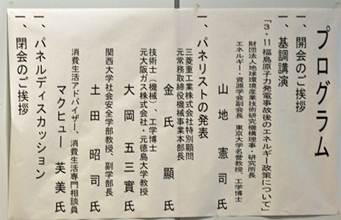 プログラム
一、開会のご挨拶
一、基調講演
「3・11福島原子力発電事故後のエネルギー政策について」
財団法人地球環境産業技術研究機構理事・研究所長
エネルギー・資源学会副会長 東京大学名誉教授、工学博士
山地憲司氏
一、パネリストの発表
三菱重工業株式会社特別顧問
元常務取締役原子力事業本部長
金氏顯氏
技術士(機械)、工学博士
元大阪ガス株式会社・元徳島大学教授
大岡五三實氏
関西大学社会安全学部教授、副学部長
土田昭司氏
消費生活アドバイザー、消費生活専門相談員
マクヒュー芙美氏
一、パネルディスカッション
一、閉会のご挨拶